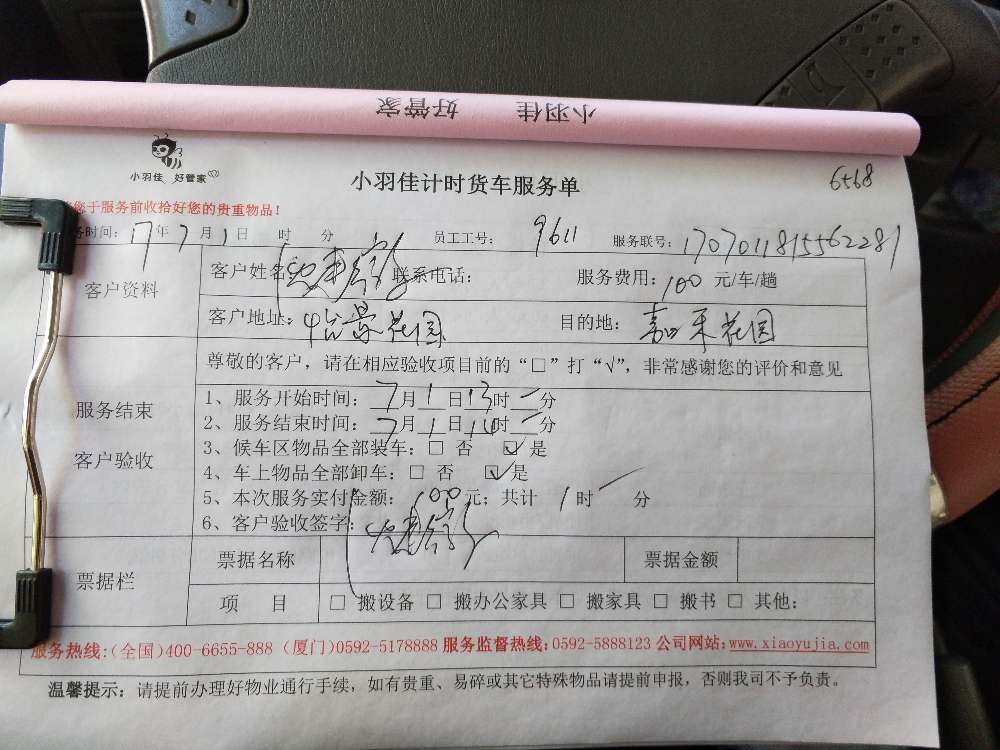 小羽佳 好管家
小羽佳 好管家
小羽佳计时货车服务单
6568
您于服务前收拾好您的贵重物品！
务时间：17年7月1日 时 分 员工工号：9611 服务联号：1707011815562281
客户资料
客户姓名 联系电话： 服务费用：100元/车/趟
客户地址：怡景花园 目的地：嘉禾花园
服务结束
客户验收
尊敬的客户，请在相应验收项目前的“□”打“√”，非常感谢您的评价和意见
1、服务开始时间：7月1日13时 分
2、服务结束时间：7月1日14时 分
3、候车区物品全部装车：□ 否 ☑是
4、车上物品全部卸车：□ 否 ☑是
5、本次服务实付金额：100元；共计 1时 分
6、客户验收签字：
票据栏
票据名称 票据金额
项 目 □ 搬设备 □ 搬办公家具 □ 搬家具 □ 搬书 □ 其他：
服务热线：（全国）400-6655-888（厦门）0592-5178888 服务监督热线：0592-5888123 公司网站：www.xiaoyujia.com
温馨提示：请提前办理好物业通行手续，如有贵重、易碎或其它特殊物品请提前申报，否则我司不予负责。